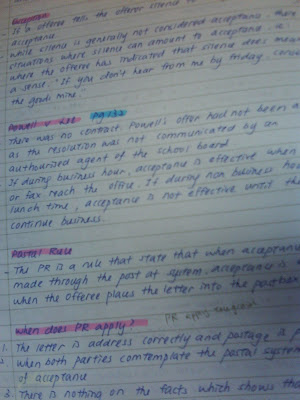 Acceptance
If a offeree tells the offeror silence to
acceptance.
While silence is generally not considered acceptance, there
situations where silence can amount to acceptance is
where the offeree has indicated that silence does mean
a sense. "If you don't hear from me by friday, consi
the goods mine."
Powell v Lee pg 132
there was no contract. Powell's offer had not been a
as the resolution was not communicated by an
authorized agent of the school board
If during business hour, acceptance is effective when
or fax reach the office. If during non business ho
lunch time, acceptance is not effective until the
continue business.
Postal Rule
- The PR is a rule that state that when acceptance
made through the post at system, acceptance is
when the offeree places the letter into the postbox
when does PR apply? PR apply
1. The letter is address correctly and postage is p
2. when both parties comtemplate the postal system
of acceptance
3. There is nothing on the facts which shows tha